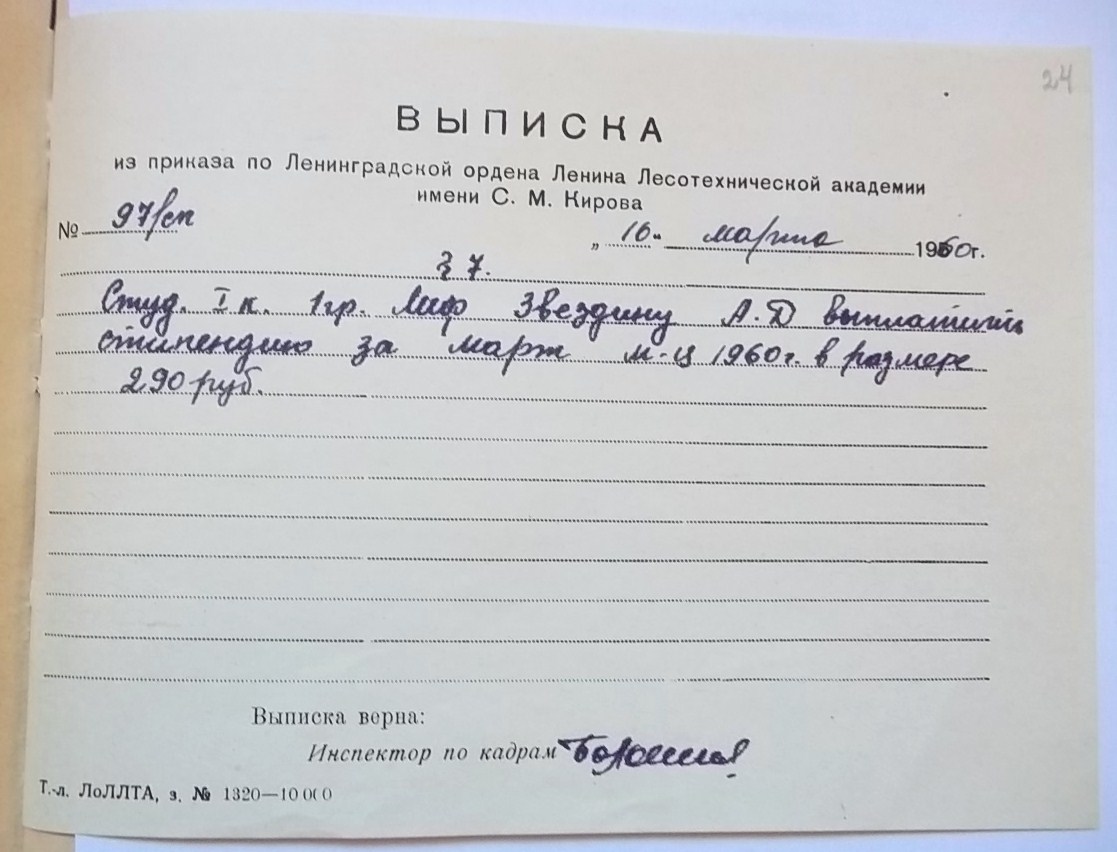 24
ВЫПИСКА
из приказа по Ленинградской ордена Ленина Лесотехнической академии
имени С. М. Кирова
№ 97/сп „16“ марта 1960г.
§ 7.
Студ. I к. 1 гр. Лиф Звездину А.Д выплатить
стипендию за март м-ц 1960г. в размере
290 руб.
Выписка верна:
Инспектор по кадрам
Т.-л. ЛоЛЛТА, з. № 1320—10000